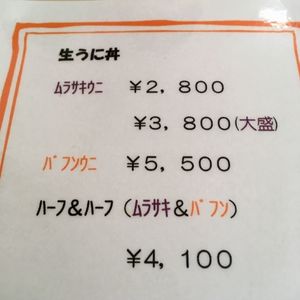 生うに丼
ﾑﾗｻｷｳﾆ ￥２，８００
￥３，８００(大盛)
ﾊﾞﾌﾝｳﾆ ￥５，５００
ﾊｰﾌ＆ﾊｰﾌ（ﾑﾗｻｷ＆ﾊﾞﾌﾝ）
￥４，１００